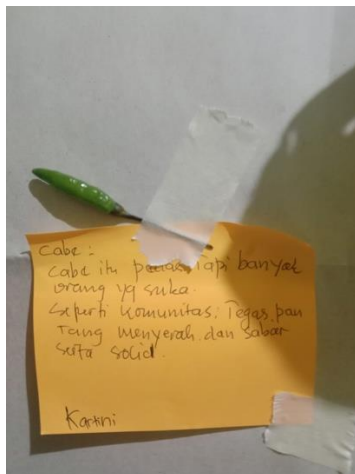 cabe :
cabe itu pedas Tapi banyak
orang yg suka.
Seperti komunitas. Tegas pan
Tang menyerah dan sabar
serta solid.
Kartini